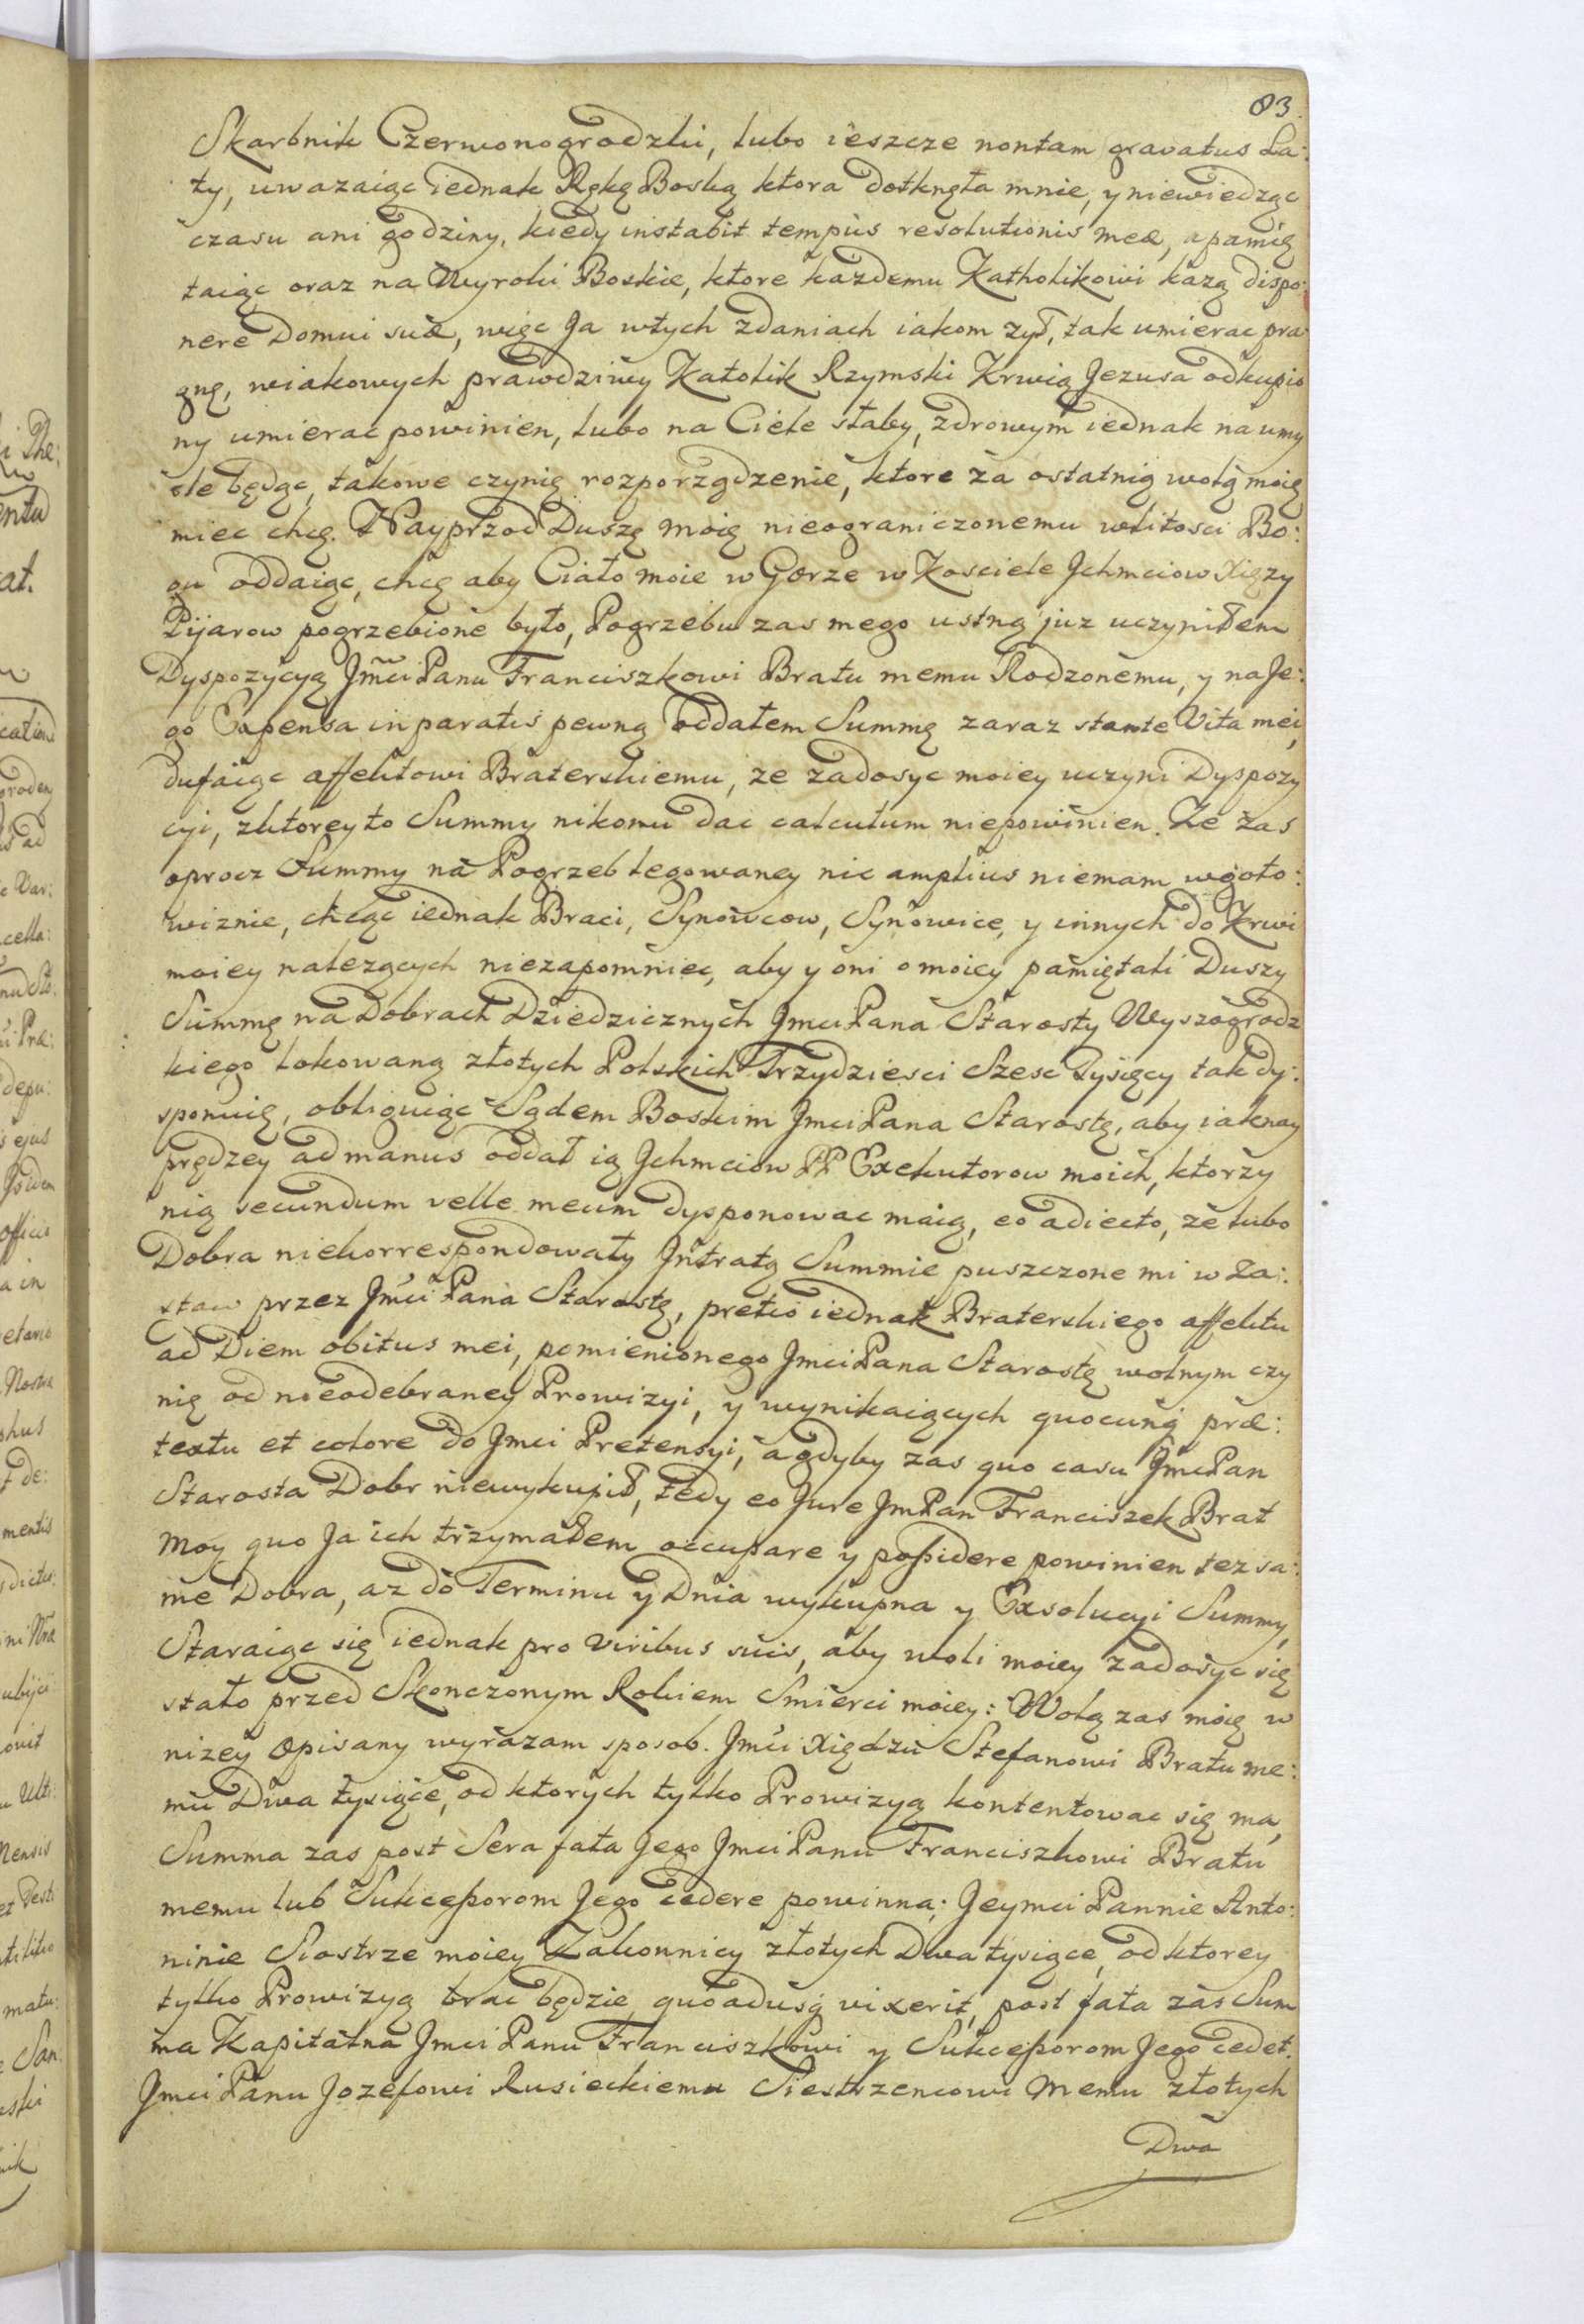 83
Skarbnik Czerwonogrodzki, lubo ieszcze nontam gravatus La:
ty, uwazaiąc iednak Rękę Boską ktora dotknęła mnie, y niewiedząc
czasu ani godziny, kiedy instabit tempus resolutionis meæ, a pamię
taiąc oraz na Wyroki Boskie, ktore kazdemu Katholikowi kazą dispo:
nere Domui suæ, więc Ja wtych zdaniach iakom zył, tak umierac pra
gnę, wiakowych prawdziwy Katolik Rzymski Krwią Jezusa odkupio
ny umierac powinien, lubo na Ciele słaby, zdrowym iednak na umy
sle będąc, takowe czynię rozporządzenie, ktore za ostatnią wolą moię
miec chcę. Nayprzod Duszę moię nieograniczonemu wlitosci Bo:
gu oddaiąc, chcę aby Ciało moie w Gorze w Kosciele Jchmciow Xięzy
Pijarow pogrzebione było, Pogrzebu zas mego ustną juz uczyniłem
Dyspozycyą Jmci Panu Franciszkowi Bratu memu Rodzonemu, y na Je:
go Expensa in paratis pewną oddałem Summę zaraz stante Vita mei,
dufaiąc affektowi Braterskiemu, ze zadosyc moiey uczyni Dyspozy
cyi, zktorey to Summy nikomu dac calculum niepowinien. Ze zas
oprocz Summy na Pogrzeb legowaney nic amplius niemam wgoto:
wiznie, chcąc iednak Braci, Synowcow, Synowice, y innych do Krwi
moiey nalezących niezapomniec, aby y oni o moiey pamiętali Duszy
Summę na Dobrach Dziedzicznych Jmci Pana Starosty Wyszogrodz
kiego lokowaną złotych Polskich Trzydziesci Szesc Tysięcy tak dy:
sponuię, obliguiąc Sądem Boskim Jmci Pana Starostę, aby iaknay
prędzey ad manus oddał ią Jchmciow PP Exekutorow moich, ktorzy
nią secundum velle meum dysponowac maią, eo adiecto, ze lubo
Dobra niekorrespondowały Jntratą Summie puszczone mi w Za:
staw przez Jmci Pana Starostę, pretio iednak Braterskiego affektu
ad Diem obitus mei, pomienionego Jmci Pana Starostę wolnym czy
nię od nieodebraney Prowizyi, y wynikaiących quocunq præ:
textu et colore do Jmci Pretensyi, a gdyby zas quo casu Jmc Pan
Starosta Dobr niewykupił, tedy eo Jure Jm Pan Franciszek Brat
moy quo Ja ich trzymałem occupare y possidere powinien tez sa:
me Dobra, az do Terminu y Dnia wykupna y Exsolucyi Summy,
Staraiąc się iednak pro viribus suis, aby woli moiey zadosyc się
stało przed Skonczonym Rokiem Smierci moiey: Wolą zas moię w
nizey opisany wyrazam sposob. Jmci Xiędzu Stefanowi Bratu me:
mu Dwa tysiące, od ktorych tylko Prowizyą kontentowac się ma,
Summa zas post Sera fata Jego Jmci Panu Franciszkowi Bratu
memu lub Sukcessorom Jego cedere powinna; Jeymci Pannie Anto:
ninie Siostrze moiey Zakonnicy złotych Dwa tysiące, od ktorey
tylko Prowizyą brac będzie quoadusq vixerit, post fata zas Sum
ma Kapitalna Jmci Panu Franciszkowi y Sukcessorom Jego cedet.
Jmci Panu Jozefowi Rusieckiemu Siestrzencowi memu złotych
Dwa